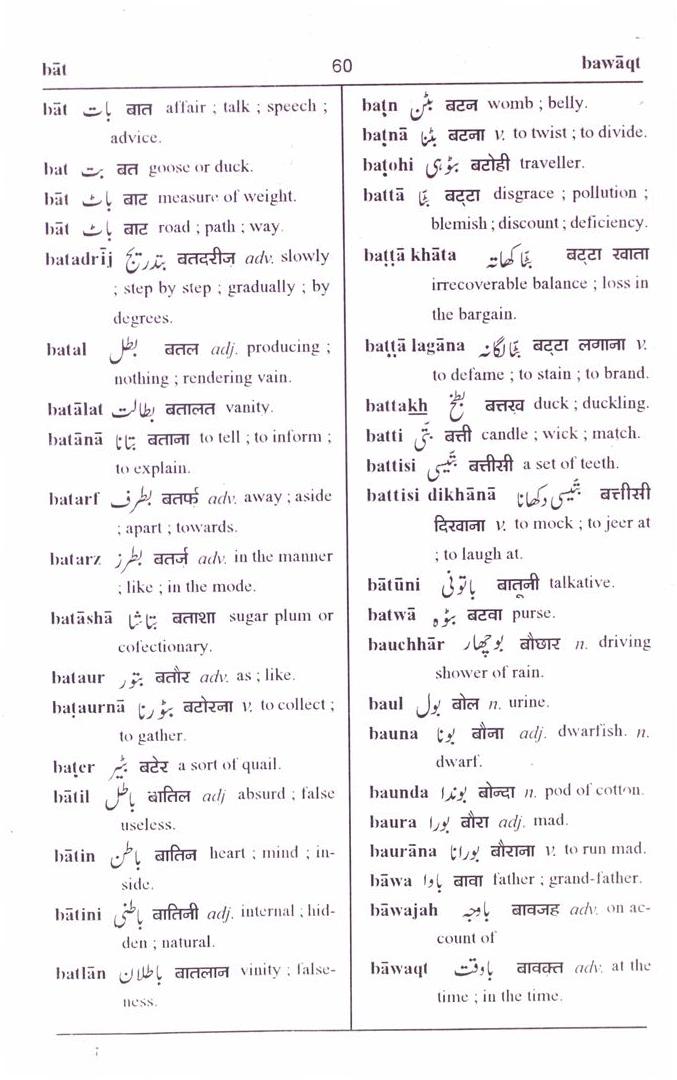 bāt 60 bawāqt
bāt بات बात affair ; talk ; speech ;
advice.
bat بت बत goose or duck.
bāt باٹ बाट measure of weight.
bāt باٹ बाट road ; path ; way.
batadrīj بتدریج बतदरीज़ adv. slowly
; step by step ; gradually ; by
degrees.
batal بطل बतल adj. producing ;
nothing ; rendering vain.
batālat بطالت बतालत vanity.
batānā بتانا बताना to tell ; to inform ;
to explain.
batarf بطرف बतर्फ adv. away ; aside
; apart ; towards.
batarz بطرز बतर्ज़ adv. in the manner
; like ; in the mode.
batāshā بتاشا बताशा sugar plum or
cofectionary.
bataur بتور बतौर adv. as ; like.
baṭaurnā بٹورنا बटोरना v. to collect ;
to gather.
baṭer بٹیر बटेर a sort of quail.
bātil باطل बातिल adj absurd ; false
useless.
bātin باطن बातिन heart ; mind ; in-
side.
bātini باطنی बातिनी adj. internal ; hid-
den ; natural.
batlān باطلان बातलान vinity ; false-
ness.
baṭn بٹن बटन womb ; belly.
baṭnā بٹنا बटना v. to twist ; to divide.
baṭohi بٹوہی बटोही traveller.
battā بٹا बट्टा disgrace ; pollution ;
blemish ; discount ; deficiency.
baṭṭā khāta بٹا کھاتہ बट्टा खाता
irrecoverable balance ; loss in
the bargain.
baṭṭā lagāna بٹا لگانہ बट्टा लगाना v.
to defame ; to stain ; to brand.
battakh بطخ बत्तख duck ; duckling.
batti بتّی बत्ती candle ; wick ; match.
battisi بتّیسی बत्तीसी a set of teeth.
battisi dikhānā بتّیسی دکھانا बत्तीसी
दिखाना v. to mock ; to jeer at
; to laugh at.
bātūni باتونی बातूनी talkative.
batwā بٹوہ बटवा purse.
bauchhār بوچھار बौछार n. driving
shower of rain.
baul بول बोल n. urine.
bauna بونا बौना adj. dwarfish. n.
dwarf.
baunda بوندا बोन्दा n. pod of cotton.
baura بورا बौरा adj. mad.
baurāna بورانا बौराना v. to run mad.
bāwa باوا बावा father ; grand-father.
bāwajah باوجہ बावजह adv. on ac-
count of
bāwaqt باوقت बावक्त adv. at the
time ; in the time.